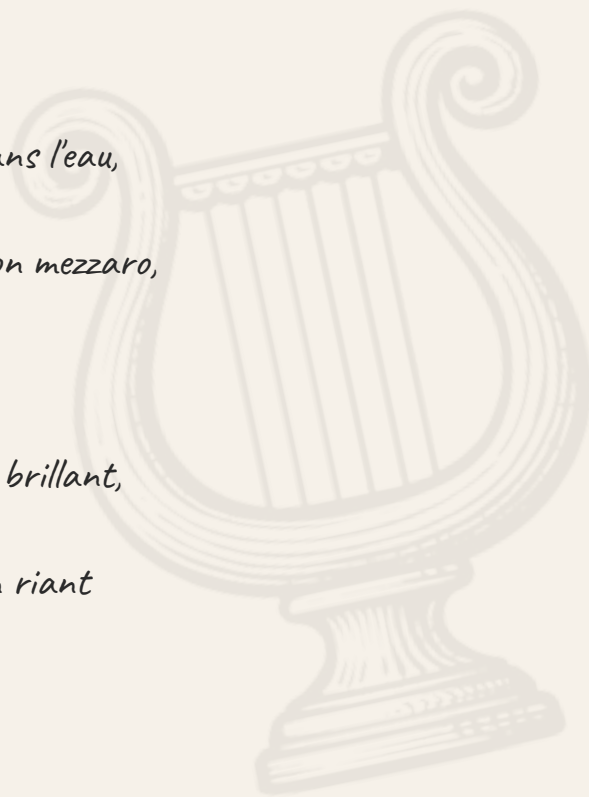 ns l'eau,
on mezzaro,
brillant,
riant